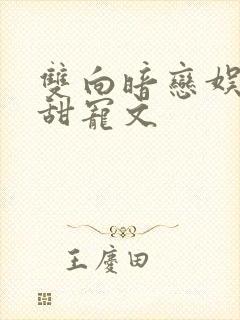 雙向暗戀娛
甜寵文
王慶田